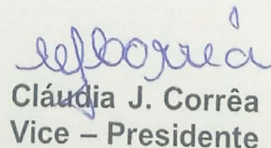 Cláudia J. Corrêa
Vice – Presidente